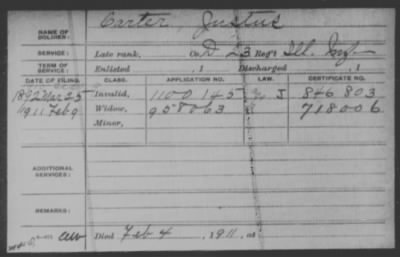 NAME OF SOLDIER: Carter, Justus
SERVICE: Late rank, Co. D 23 Reg't Ill. Inf.
TERM OF SERVICE: Enlisted , 1 Discharged , 1
DATE OF FILING. CLASS. APPLICATION NO. LAW. CERTIFICATE NO.
1892 Mar 25 Invalid, 1100145 J 846803
1911 Feb 9 Widow, 958063 718006
Minor,
ADDITIONAL SERVICES:
REMARKS:
Died Feb 4, 1911, at